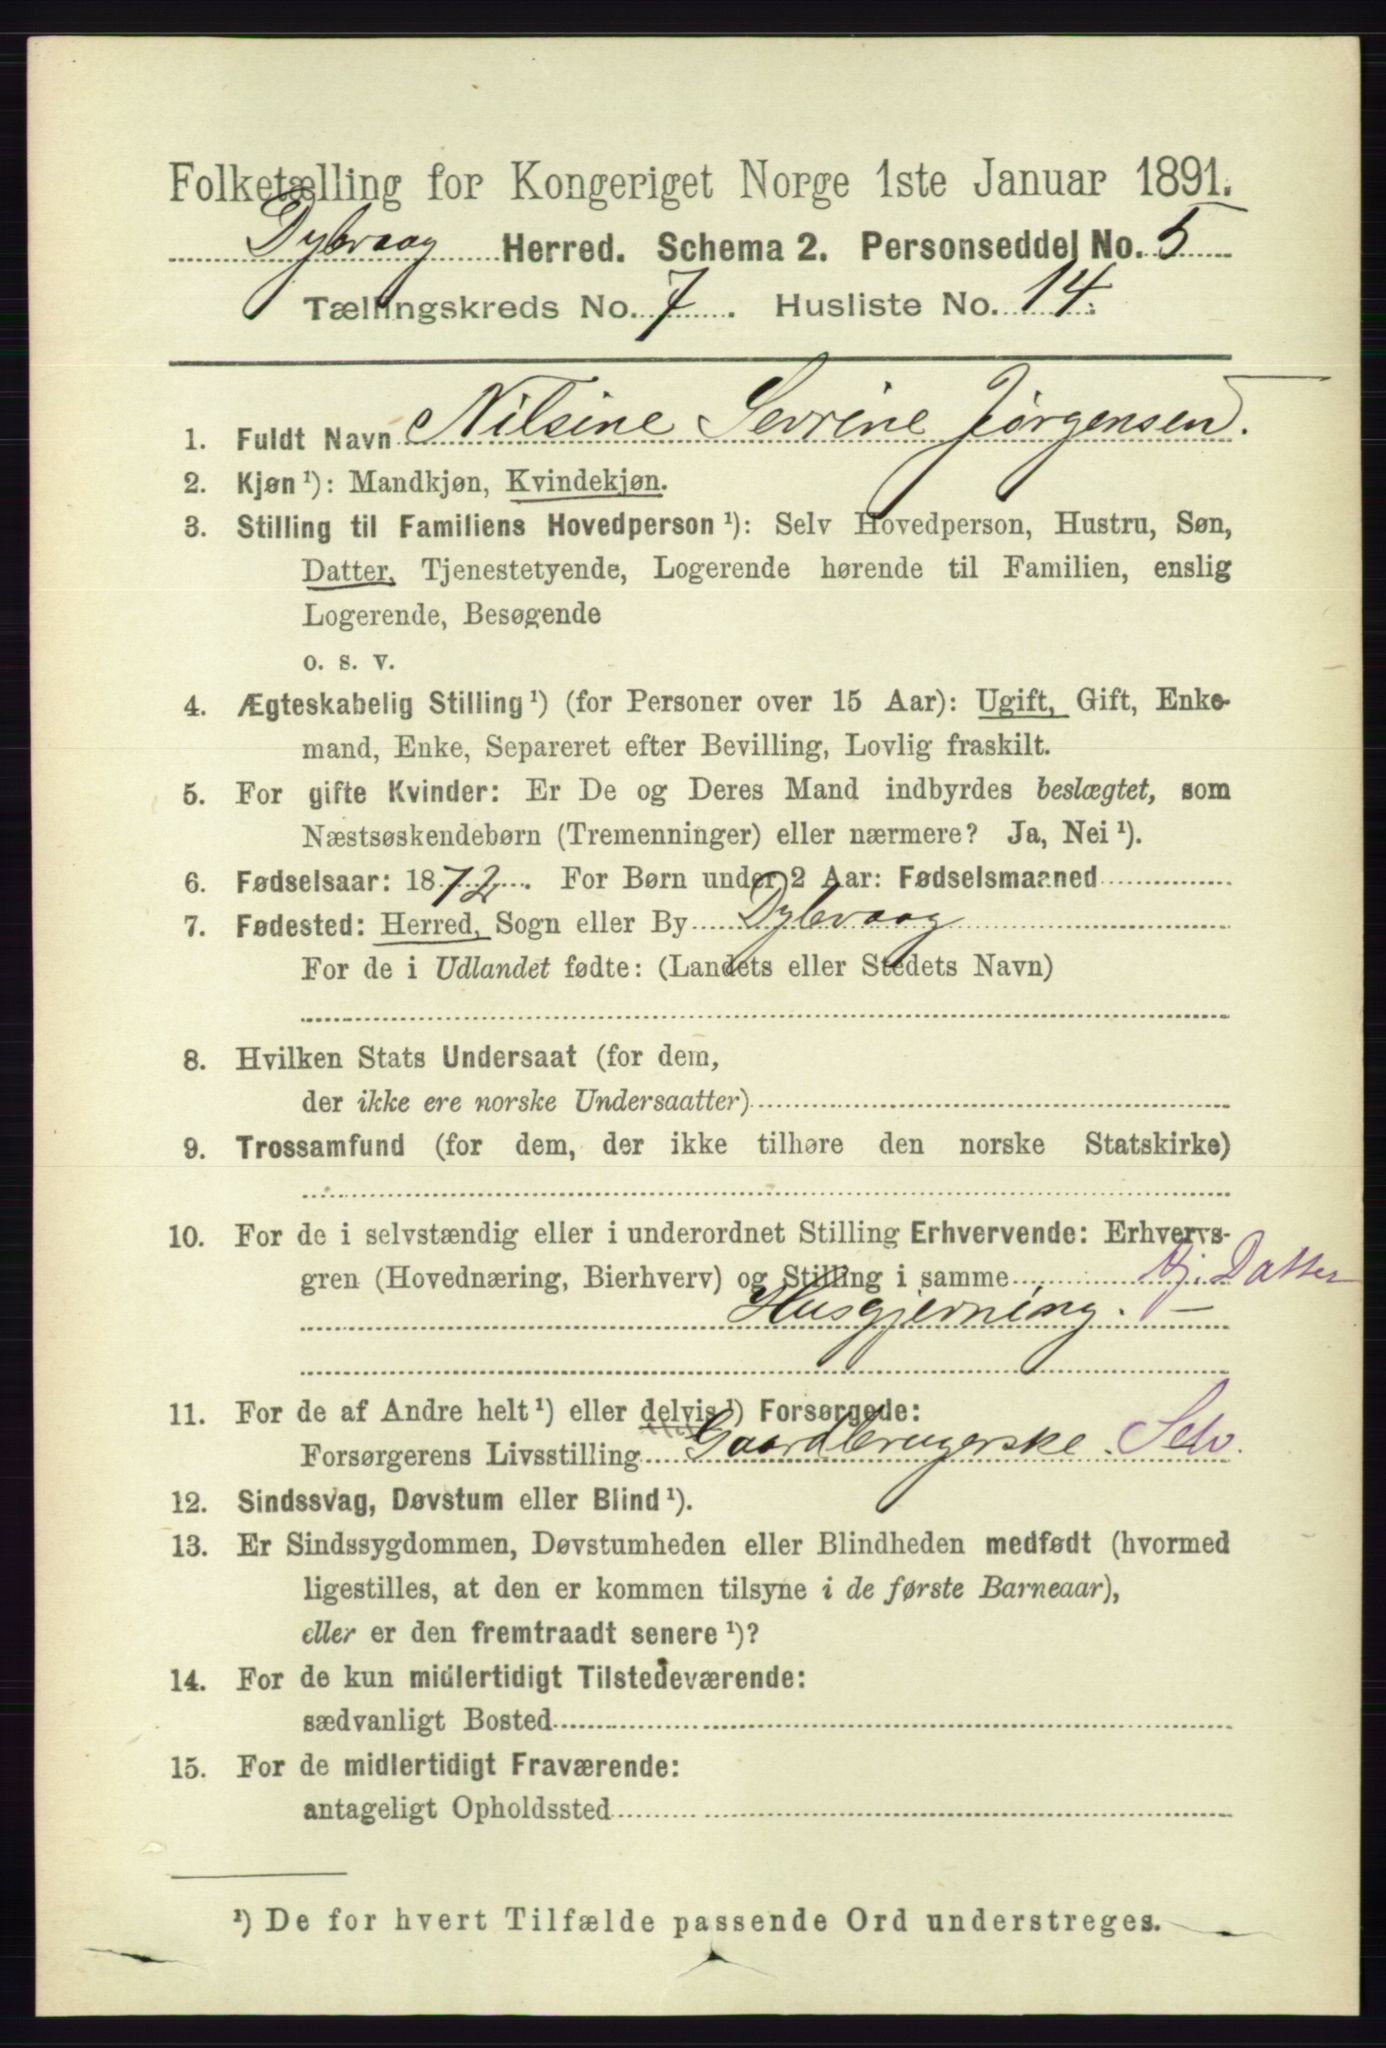 Folketælling for Kongeriget Norge 1ste Januar 1891.
Dybvaag Herred. Schema 2. Personseddel No. 5
Tællingskreds No. 7. Husliste No. 14.
1. Fuldt Navn Nilsine Serine Jørgensen.
2. Kjøn ¹): Mandkjøn, Kvindekjøn.
3. Stilling til Familiens Hovedperson ¹): Selv Hovedperson, Hustru, Søn,
Datter, Tjenestetyende, Logerende hørende til Familien, enslig
Logerende, Besøgende
o. s. v.
4. Ægteskabelig Stilling ¹) (for Personer over 15 Aar): Ugift, Gift, Enke-
mand, Enke, Separeret efter Bevilling, Lovlig fraskilt.
5. For gifte Kvinder: Er De og Deres Mand indbyrdes beslægtet, som
Næstsøskendebørn (Tremenninger) eller nærmere? Ja, Nei ¹).
6. Fødselsaar: 1872. For Børn under 2 Aar: Fødselsmaaned
7. Fødested: Herred, Sogn eller By Dybvaag
For de i Udlandet fødte: (Landets eller Stedets Navn)
8. Hvilken Stats Undersaat (for dem,
der ikke ere norske Undersaatter)
9. Trossamfund (for dem, der ikke tilhøre den norske Statskirke)
10. For de i selvstændig eller i underordnet Stilling Erhvervende: Erhvervs-
gren (Hovednæring, Bierhverv) og Stilling i samme Datter
Husgjerning. —
11. For de af Andre helt ¹) eller delvis ¹) Forsørgede:
Forsørgerens Livsstilling Gaardbrugerske. Selv.
12. Sindssvag, Døvstum eller Blind ¹).
13. Er Sindssygdommen, Døvstumheden eller Blindheden medfødt (hvormed
ligestilles, at den er kommen tilsyne i de første Barneaar),
eller er den fremtraadt senere ¹)?
14. For de kun midlertidigt Tilstedeværende:
sædvanligt Bosted
15. For de midlertidigt Fraværende:
antageligt Opholdssted
¹) De for hvert Tilfælde passende Ord understreges.